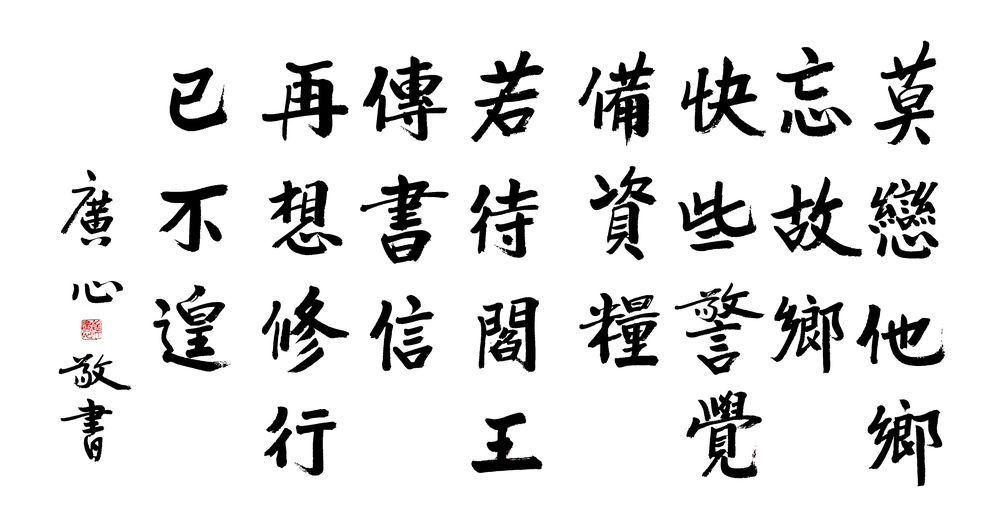 莫戀他鄉
忘故鄉
快些警覺
備資糧
若待閻王
傳書信
再想修行
已不遑
廣心敬書